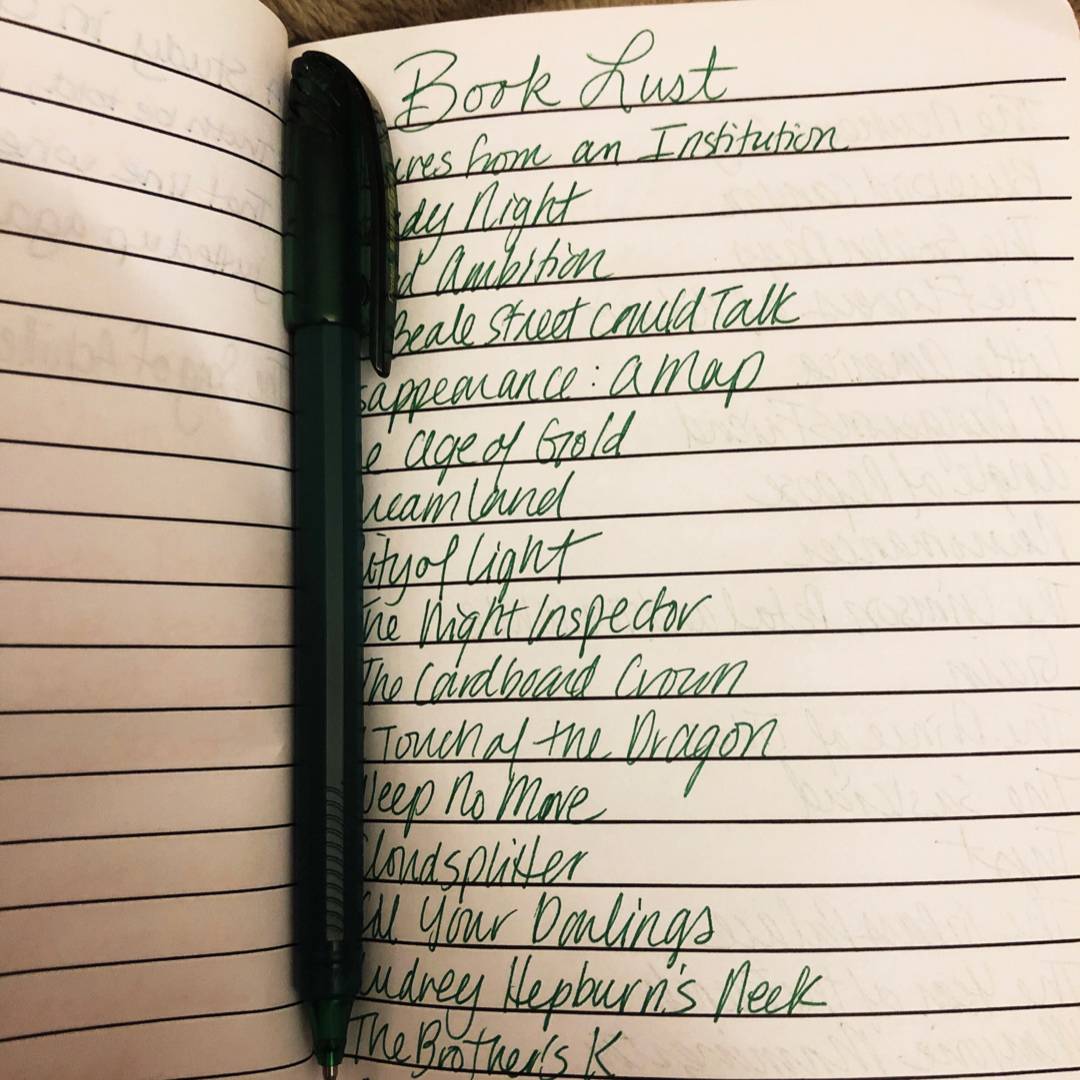 Book Lust
ures from an Institution
dy Night
d Ambition
Beale Street Could Talk
sappearance: a Map
e Age of Gold
reamland
ity of Light
he Night Inspector
The Cardboard Crown
Touch of the Dragon
Weep No More
loudsplitter
ill Your Darlings
udrey Hepburn's Neck
The Brother's K